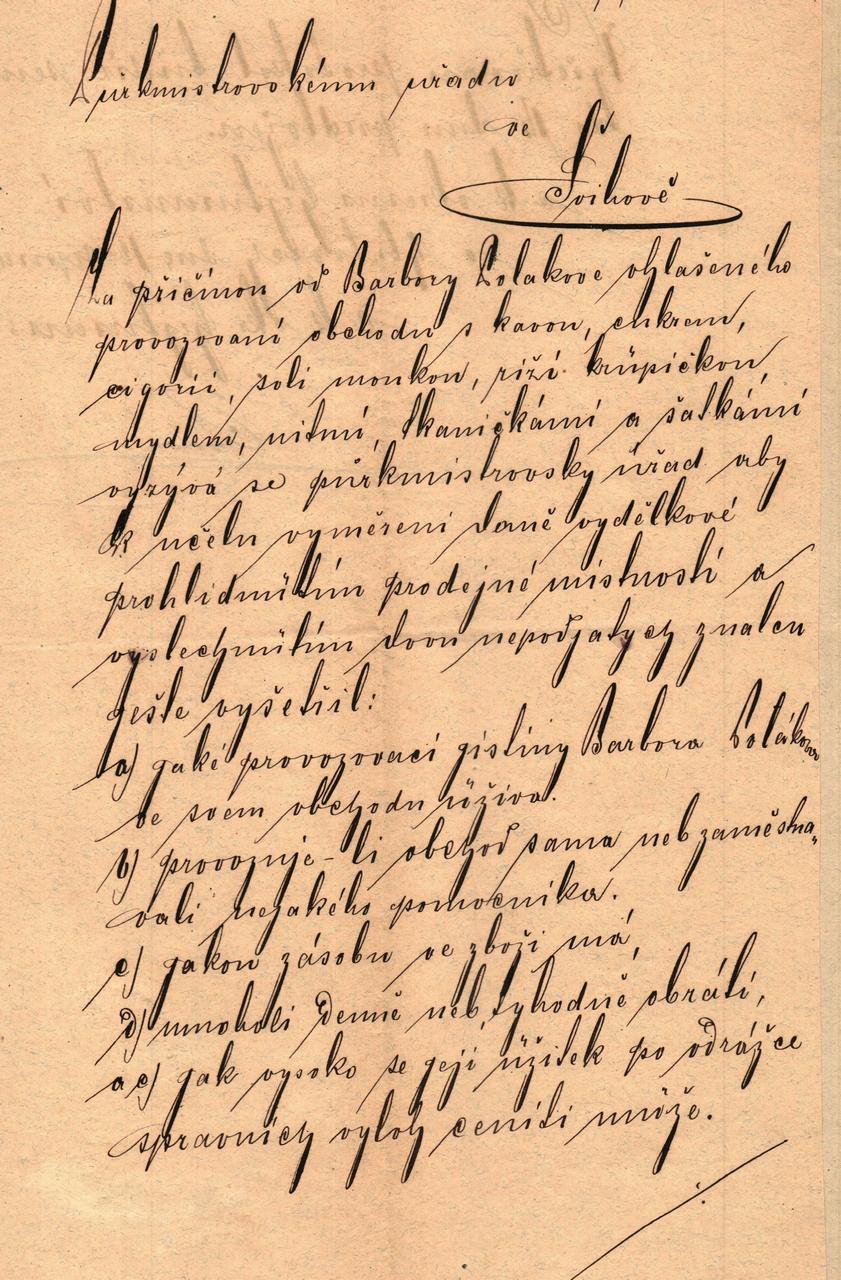 Purkmistrovskému uřadu
ve
Švihově
Za přičinou od Barbory Polakove ohlašeného
provozovaní obchodu s kavou, cukrem,
cigorii, soli moukou, riží krüpičkou,
mydlem, nitmí, tkaničkámi a šatkámi
vyzývá se půrkmistrovsky úřad aby
k učelu vyměřeni daně vydělkové
prohlidnütím prodejné místnosti a
vyslechnütím dvou nepodjatych znalcu
geště vyšetřil:
a) gaké provozovaci gistiny Barbora Polákova
ve svem obchodu üživa.
b) provozuje-li obchod sama neb zaměstna„
vali nejakého pomocnika.
c) gakou zásobu ve zboži má,
d) mnoholi denně neb tyhodně obrátí,
a e) gak vysoko se geji üžitek po odrážce
spravnich vyloh ceniti může.